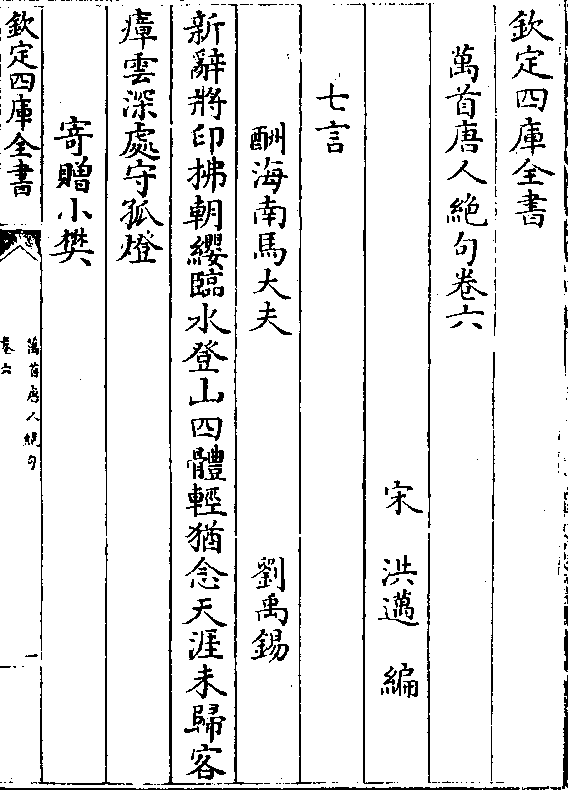 欽定四庫全書
萬首唐人絶句卷六
宋 洪邁 編
七言
酬海南馬大夫 劉禹錫
新辭將印拂朝纓臨水登山四體輕猶念天涯未歸客
瘴雲深處守孤燈
寄贈小樊
欽定四庫全書
萬首唐人絶句
卷六
一